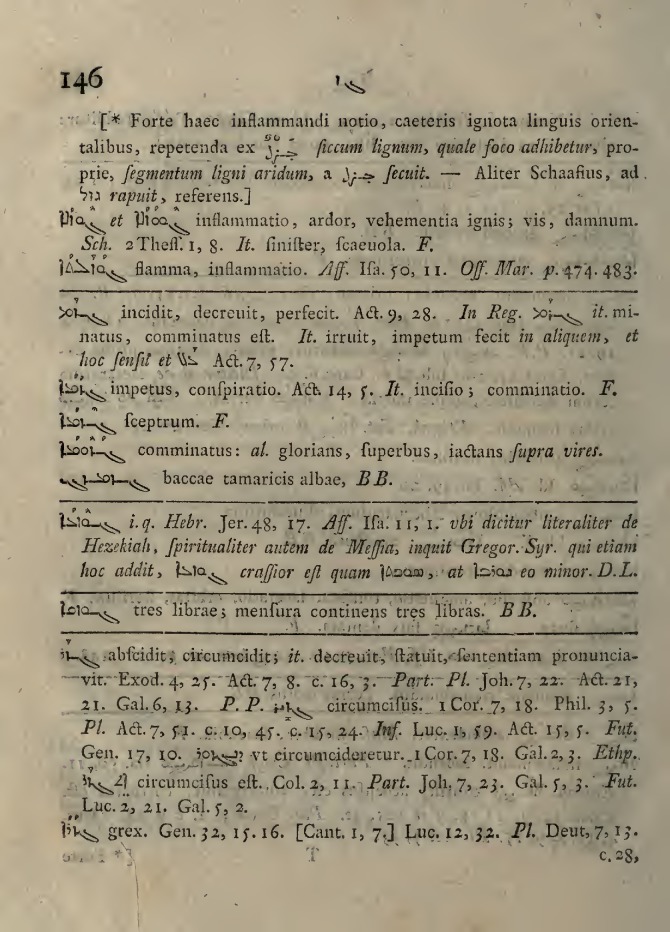 146 ܓܙ
[* Forte haec inflammandi notio, caeteris ignota linguis orien-
talibus, repetenda ex ſiccum lignum, quale foco adhibetur, pro-
prie, ſegmentum ligni aridum, a ſecuit. — Aliter Schaafius, ad
גזל rapuit, referens.]
et inflammatio, ardor, vehementia ignis; vis, damnum.
Sch. 2 Theſſ. 1, 8. It. ſiniſter, ſcaeuola. F.
flamma, inflammatio. Aſſ. Iſa. 50, 11. Off. Mar. p. 474. 483.
ܓܙܡ incidit, decreuit, perfecit. Act. 9, 28. In Reg. ܓܙܡ it. mi-
natus, comminatus eſt. It. irruit, impetum fecit in aliquem, et
hoc ſenſu et ܥܠ Act. 7, 57.
ܓܙܡܐ impetus, conſpiratio. Act. 14, 5. It. inciſio; comminatio. F.
ſceptrum. F.
ܓܙܘܡܐ comminatus: al. glorians, ſuperbus, iactans ſupra vires.
baccae tamaricis albae, BB.
ܓܘܙܥܐ i. q. Hebr. Jer. 48, 17. Aſſ. Iſa. 11, 1. vbi dicitur literaliter de
Hezekiah, ſpiritualiter autem de Meſſia, inquit Gregor. Syr. qui etiam
hoc addit, ܓܘܙܥܐ craſſior eſt quam at eo minor. D.L.
tres librae; menſura continens tres libras. BB.
ܓܙܪ abſcidit; circumcidit; it. decreuit, ſtatuit, ſententiam pronuncia-
vit. Exod. 4, 25. Act. 7, 8. c. 16, 3. Part. Pl. Joh. 7, 22. Act. 21,
21. Gal. 6, 13. P. P. ܓܙܝܪ circumciſus. 1 Cor. 7, 18. Phil. 3, 5.
Pl. Act. 7, 51. c. 10, 45. c. 15, 24. Inf. Luc. 1, 59. Act. 15, 5. Fut.
Gen. 17, 10. vt circumcideretur. 1 Cor. 7, 18. Gal. 2, 3. Ethp.
ܐܬܓܙܪ circumciſus eſt. Col. 2, 11. Part. Joh. 7, 23. Gal. 5, 3. Fut.
Luc. 2, 21. Gal. 5, 2.
ܓܙܪܐ grex. Gen. 32, 15. 16. [Cant. 1, 7.] Luc. 12, 32. Pl. Deut, 7, 13.
T c. 28,